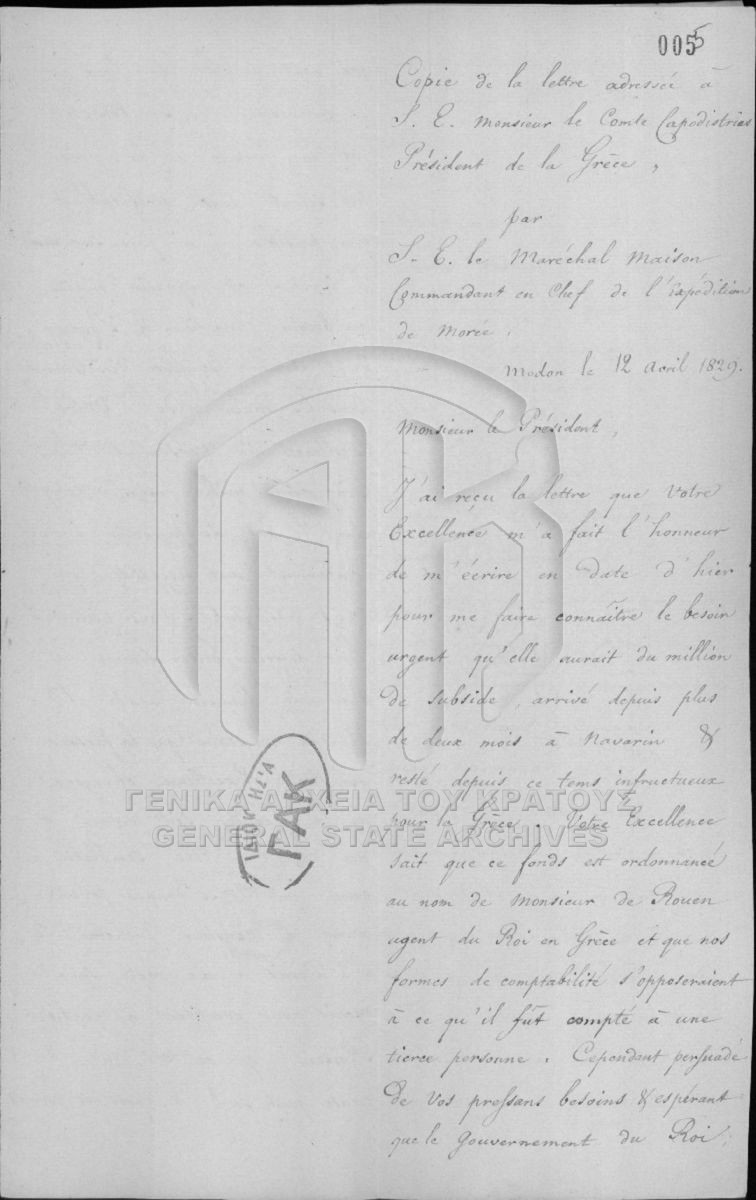 005
5
Copie de la lettre adressée à
S. E. Monsieur le Comte Capodistrias
Président de la Grèce,
par
S. E. le Maréchal Maison
Commandant en Chef de l'Expédition
de Morée.
Modon le 12 Avril 1829.
Monsieur le Président,
J'ai reçu la lettre que Votre
Excellence m'a fait l'honneur
de m'écrire en date d'hier
pour me faire connaître le besoin
urgent qu'elle aurait du million
de subside, arrivé depuis plus
de deux mois à Navarin &
resté depuis ce tems infructueux
pour la Grèce. Votre Excellence
sait que ce fonds est ordonnancé
au nom de Monsieur de Rouen
agent du Roi en Grèce et que nos
formes de comptabilité s'opposeraient
à ce qu'il fût compté à une
tierce personne. Cependant persuadé
de vos pressans besoins & espérant
que le Gouvernement du Roi,
ΓΕΝΙΚΑ ΑΡΧΕΙΑ ΤΟΥ ΚΡΑΤΟΥΣ
GENERAL STATE ARCHIVES
ΓΑΚ